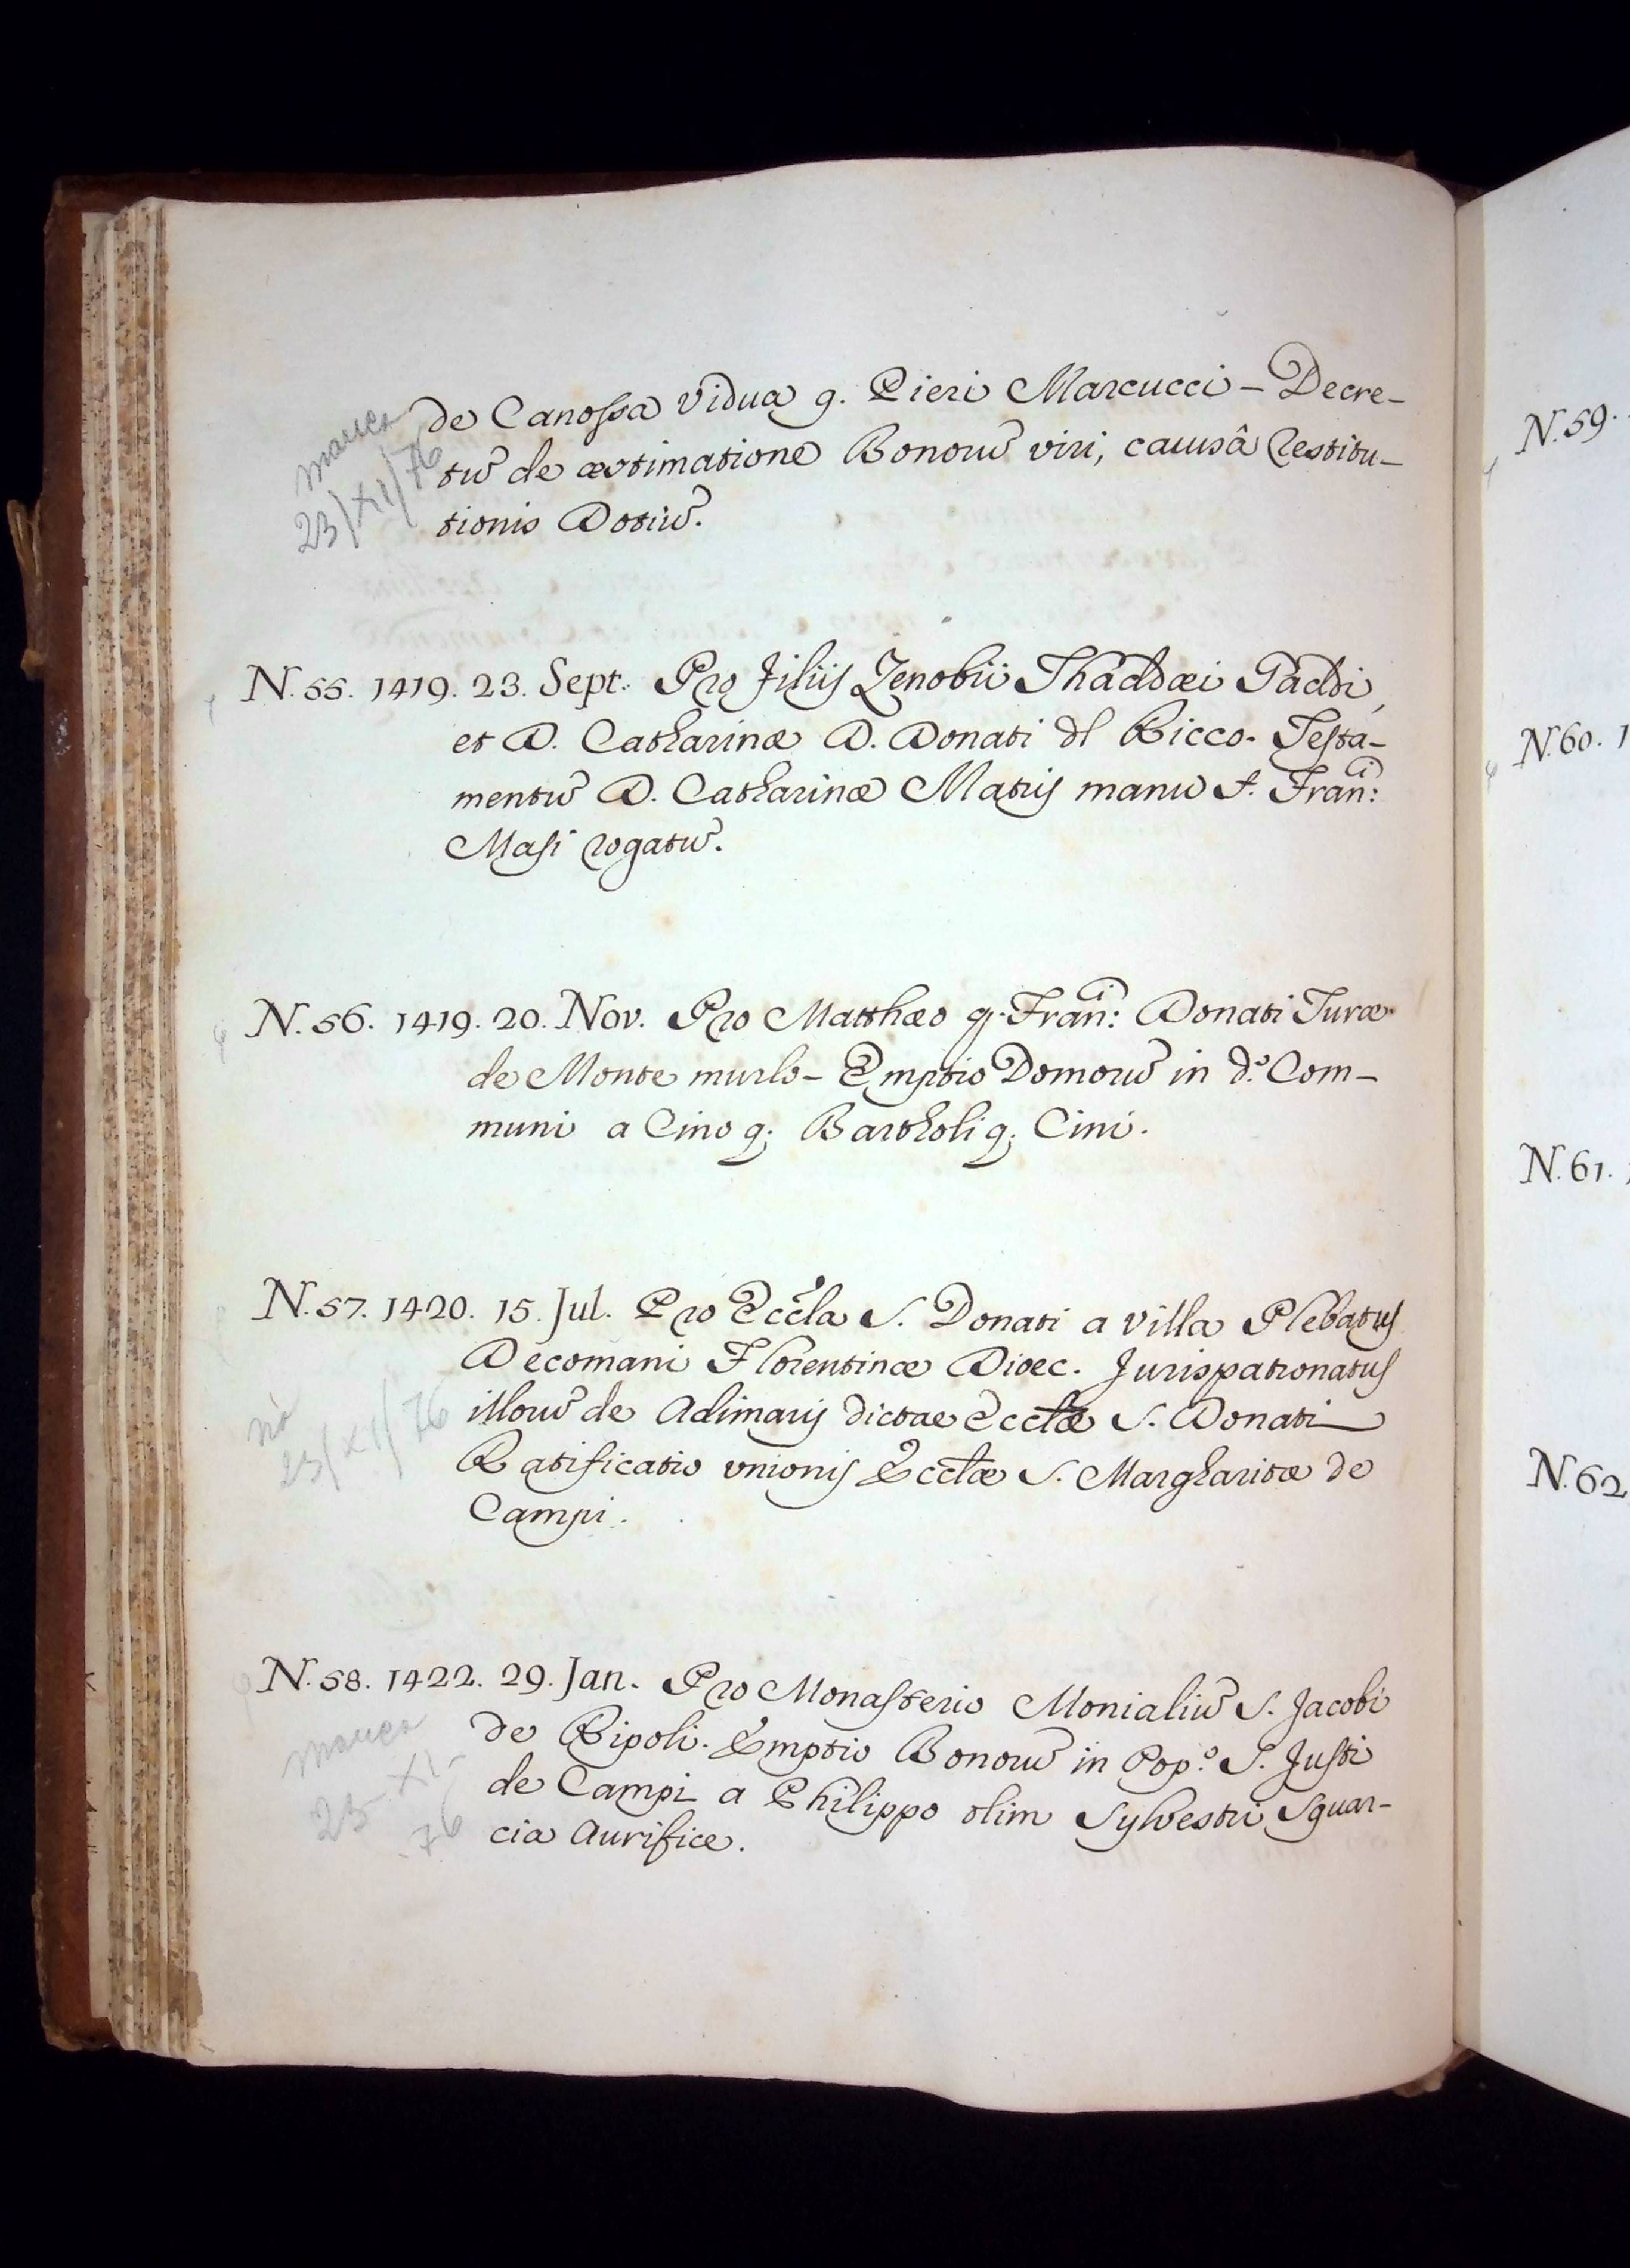 de Canossa vidua q. Pieri Marcucci – Decre-
tu̅ de æstimatione Bonoru̅ viri, causâ restitu-
tionis Dotiu̅.
manca
23/XI/76
N. 55. 1419. 23. Sept. Pro filiis Zenobii Thaddæi Taddi,
et D. Catharinæ D. Donati dl Ricco. Testa-
mentu̅ D. Catharinæ Matris manu S. Fran:ci
Masi rogatu̅.
N. 56. 1419. 20. Nov. Pro Matthæo q. Fran:ci Donati Turæ
de Monte murlo – Emptio Domoru̅ in d.o Com-
muni a Cino q. Bartholi q. Cini.
N. 57. 1420. 15. Jul. Pro Eccla S. Donati a villa Plebatus
Decomani Florentinæ Dioec. Jurispatronatus
illoru̅ de Adimaris dictae Ecclæ S. Donati
Ratificatio unionis Ecclæ S. Margharitæ de
Campi.
no
23/XI/76
N. 58. 1422. 29. Jan. Pro Monasterio Monialiu̅ S. Jacobi
de Ripoli. Emptio Bonoru̅ in Pop.o S. Justi
de Campi a Philippo olim Sylvestri Sguar-
cia Aurifice.
manca
23-XI-
76
N. 59.
N. 60. 1
N. 61.
N. 62